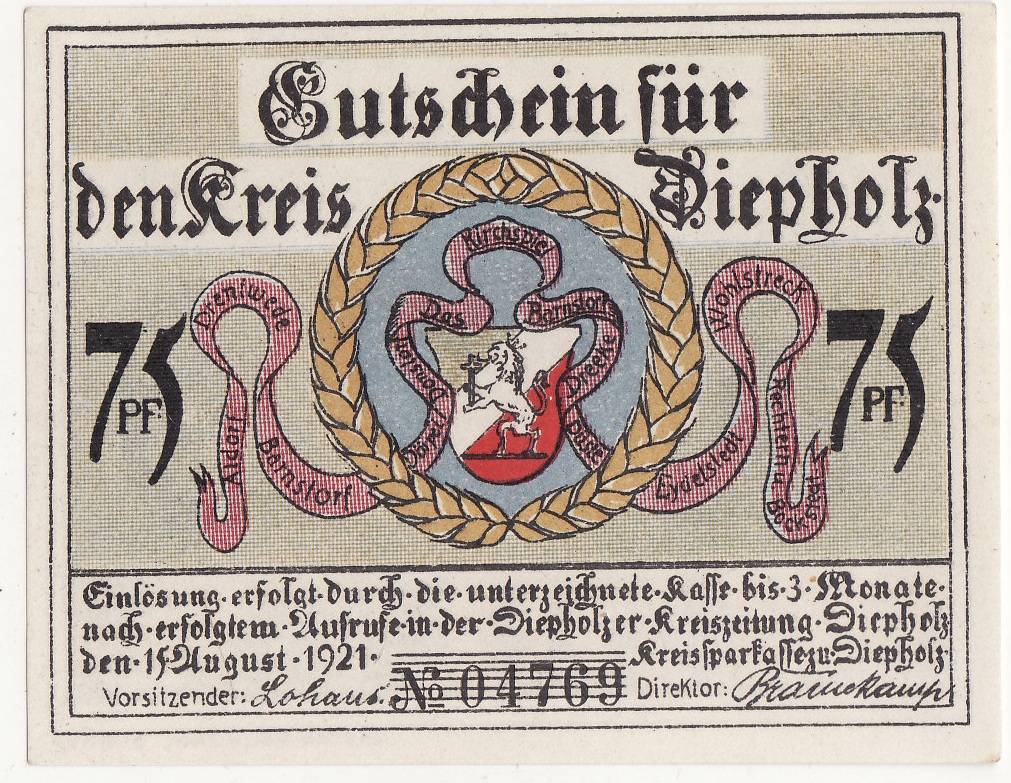 Gutschein für
den Kreis Diepholz
75 PF.
75 PF.
Drentwede
Aldorf
Barnstorf
Kirchspiel
Das
Barnstorf
Dreeke
Wohlstreck
Rechtern
Eydelstedt
Einlösung·erfolgt·durch·die·unterzeichnete·Kasse·bis·3·Monate·
nach·erfolgtem·Aufrufe·in·der·Diepholzer·Kreiszeitung·Diepholz
den·15·August·1921· Kreissparkasse zu Diepholz
Vorsitzender: Lohaus. No 04769 Direktor: